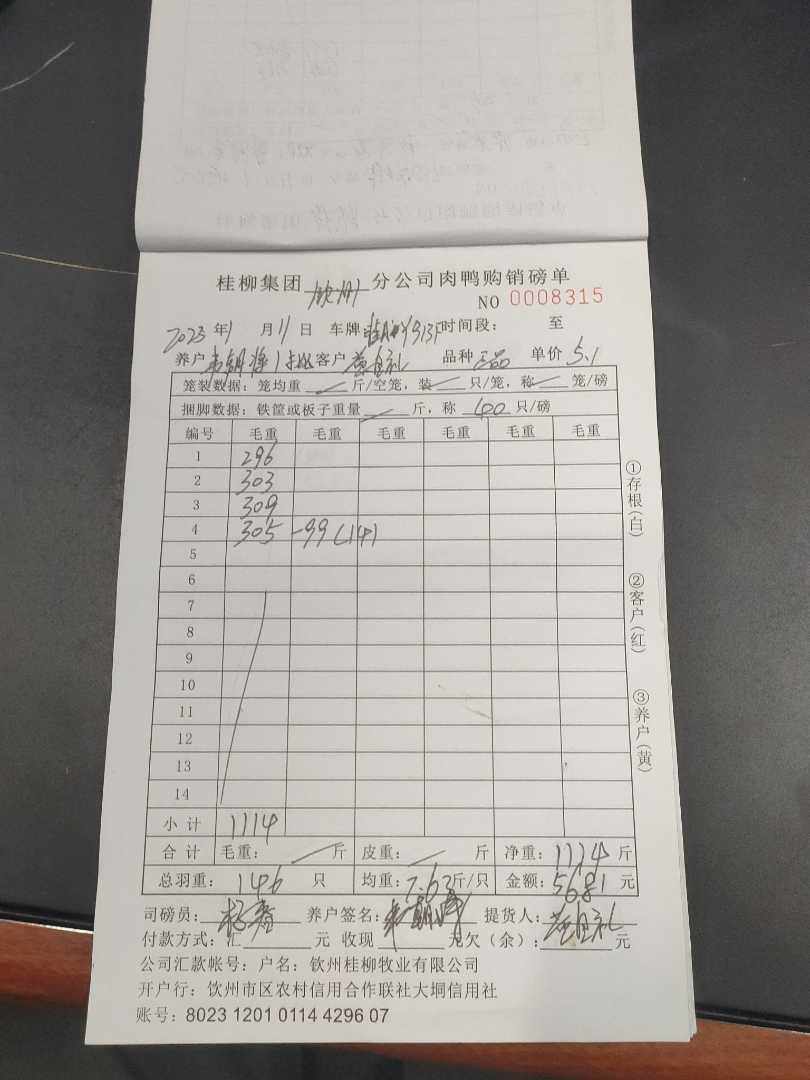 桂柳集团 钦州 分公司肉鸭购销磅单
NO 0008315
2023 年 1 月 11 日 车牌: 913F 时间段: 至
养户 客户 品种 单价 5.1
笼装数据: 笼均重 / 斤/空笼, 装 / 只/笼, 称 / 笼/磅
捆脚数据: 铁筐或板子重量 / 斤, 称 40 只/磅
编号 毛重 毛重 毛重 毛重 毛重 毛重
1 296
2 303
3 309
4 305 -99(14)
5
6
7
8
9
10
11
12
13
14
小 计 1114
合 计 毛重: / 斤 皮重: / 斤 净重: 1114 斤
总羽重: 146 只 均重: 7.63 斤/只 金额: 5681 元
司磅员: 杨 养户签名: 提货人:
付款方式: 汇 元 收现 元欠(余): 元
公司汇款帐号: 户名: 钦州桂柳牧业有限公司
开户行: 钦州市区农村信用合作联社大垌信用社
账号: 8023 1201 0114 4296 07
①存根(白)
②客户(红)
③养户(黄)